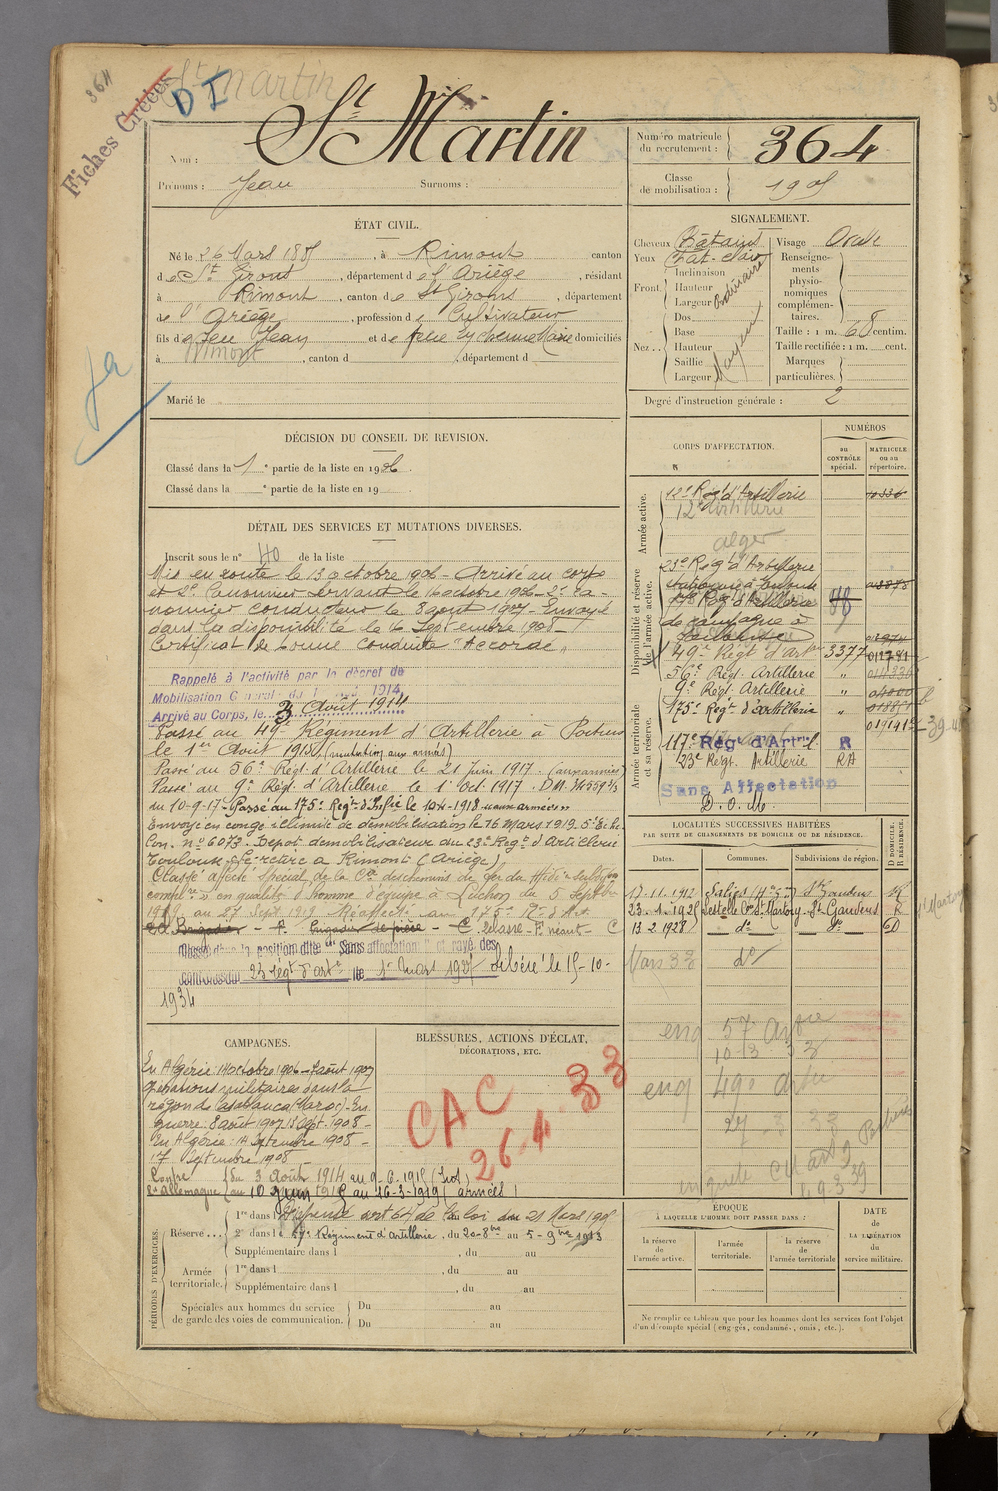 364
Fiches Créées
St Martin
D I
Nom : St Martin
Prénoms : Jean Surnoms :
Numéro matricule du recrutement : 364
Classe de mobilisation : 1905
ÉTAT CIVIL.
Né le 26 Mars 1885, à Rimont canton
de St Girons, département de l'Ariège, résidant
à Rimont, canton de St Girons, département
de l'Ariège, profession de Cultivateur
fils de feu Jean et de feue Eychenne Marie domiciliés
à Rimont, canton d , département d
Marié le
SIGNALEMENT.
Cheveux Châtains Visage Ovale
Yeux Chât-clair
Front. Inclinaison Hauteur Largeur ordinaire
Nez.. Dos Base Hauteur Saillie Largeur Moyen
Renseignements physionomiques complémentaires.
Taille : 1 m. 68 centim.
Taille rectifiée : 1 m. cent.
Marques particulières.
Degré d'instruction générale : 2
DÉCISION DU CONSEIL DE REVISION.
Classé dans la 1e partie de la liste en 1906.
Classé dans la e partie de la liste en 19
DÉTAIL DES SERVICES ET MUTATIONS DIVERSES.
Inscrit sous le n° 40 de la liste
Mis en route le 13 octobre 1906 - Arrivé au corps
et 2e Canonnier servant le 14 octobre 1906 - 2e Ca-
nonnier conducteur le 8 août 1907 - Envoyé
dans la disponibilité le 16 Septembre 1908 -
Certificat de bonne conduite "Accordé"
Rappelé à l'activité par le décret de
Mobilisation Générale du 1 Août 1914,
Arrivé au Corps, le 3 Août 1914
Passé au 49e Régiment d'Artillerie à Poitiers
le 1er Août 1915 (mutation aux armées)
Passé au 56e Régt d'Artillerie le 21 Juin 1917. (aux armées)
Passé au 9e Rég. d'Artillerie le 1 Oct. 1917. DM.
du 10-9-17 - Passé au 175e Regt d'Artie le 10-4-1918 "aux armées"
Envoyé en congé illimité de démobilisation le 16 Mars 1919. 5e Eche-
lon. N° 6073. Dépot démobilisateur du 23e Regt d'Artillerie
Toulouse, se retire à Rimont (Ariège)
Classé affecté spécial de la Cie des chemins de fer du Midi
en qualité d'homme d'équipe à Luchon du 5 Septbre
au 27 Sept 1919 Réaffecté au 175e Rt d'Art
Classé dans la position dite "Sans affectation" et rayé des
contrôles du 23 régt d'artie le 1er Mars 1927 libéré le 15-10-
1934
CORPS D'AFFECTATION.
NUMÉROS
au CONTRÔLE spécial.
MATRICULE ou au répertoire.
Armée active.
12e Rég d'Artillerie
12e Artillerie
alger
Disponibilité et réserve de l'armée active.
23e Reg d'Artillerie
stationné à Toulouse
de campagne à
Toulouse
49e Régt d'art 3377
56e Régt. Artillerie "
9e Régt. Artillerie "
175e Regt d'artillerie "
Armée territoriale et sa réserve.
117e Régt d'Artil. R
23e Régt. Artillerie RA
Sans Affectation
D. O. M.
LOCALITÉS SUCCESSIVES HABITÉES
PAR SUITE DE CHANGEMENTS DE DOMICILE OU DE RÉSIDENCE.
Dates. Communes. Subdivisions de région. D DOMICILE. R RÉSIDENCE.
17-11-1912 Salies (Hte Gne) St Gaudens R
23-1-1925 Lestelle Con St Martory St Gaudens R
13 2 1928 do do D
Mars 33 do
57 Artie
10-3 33
49e Artie
27 3 33
CAMPAGNES.
En Algérie: 14 octobre 1906 - 7 août 1907
Opérations militaires dans la
région de Casablanca (Maroc) - En
guerre: 8 août 1907, 13 Sept. 1908 -
En Algérie: 14 Septembre 1908 -
17 Septembre 1908 -
Contre l'Allemagne { du 3 Août 1914 au 9-6-1915 (Int)
au 10 Juin 1915 au 16-3-1919 (armées)
BLESSURES, ACTIONS D'ÉCLAT,
DÉCORATIONS, ETC.
CAC
26.4.33
PÉRIODES D'EXERCICES.
Réserve...
1re dans l Dispensé art 64 de la loi du 21 Mars 1905
2e dans le 57e Régiment d'artillerie, du 20-8bre au 5-9bre 1913
Supplémentaire dans l , du au
Armée territoriale.
1re dans l , du au
Supplémentaire dans l , du au
Spéciales aux hommes du service de garde des voies de communication.
Du au
Du au
ÉPOQUE
À LAQUELLE L'HOMME DOIT PASSER DANS :
la réserve de l'armée active.
l'armée territoriale.
la réserve de l'armée territoriale
DATE de LA LIBÉRATION du service militaire.
Ne remplir ce tableau que pour les hommes dont les services font l'objet
d'un décompte spécial (engagés, condamnés, omis, etc.).